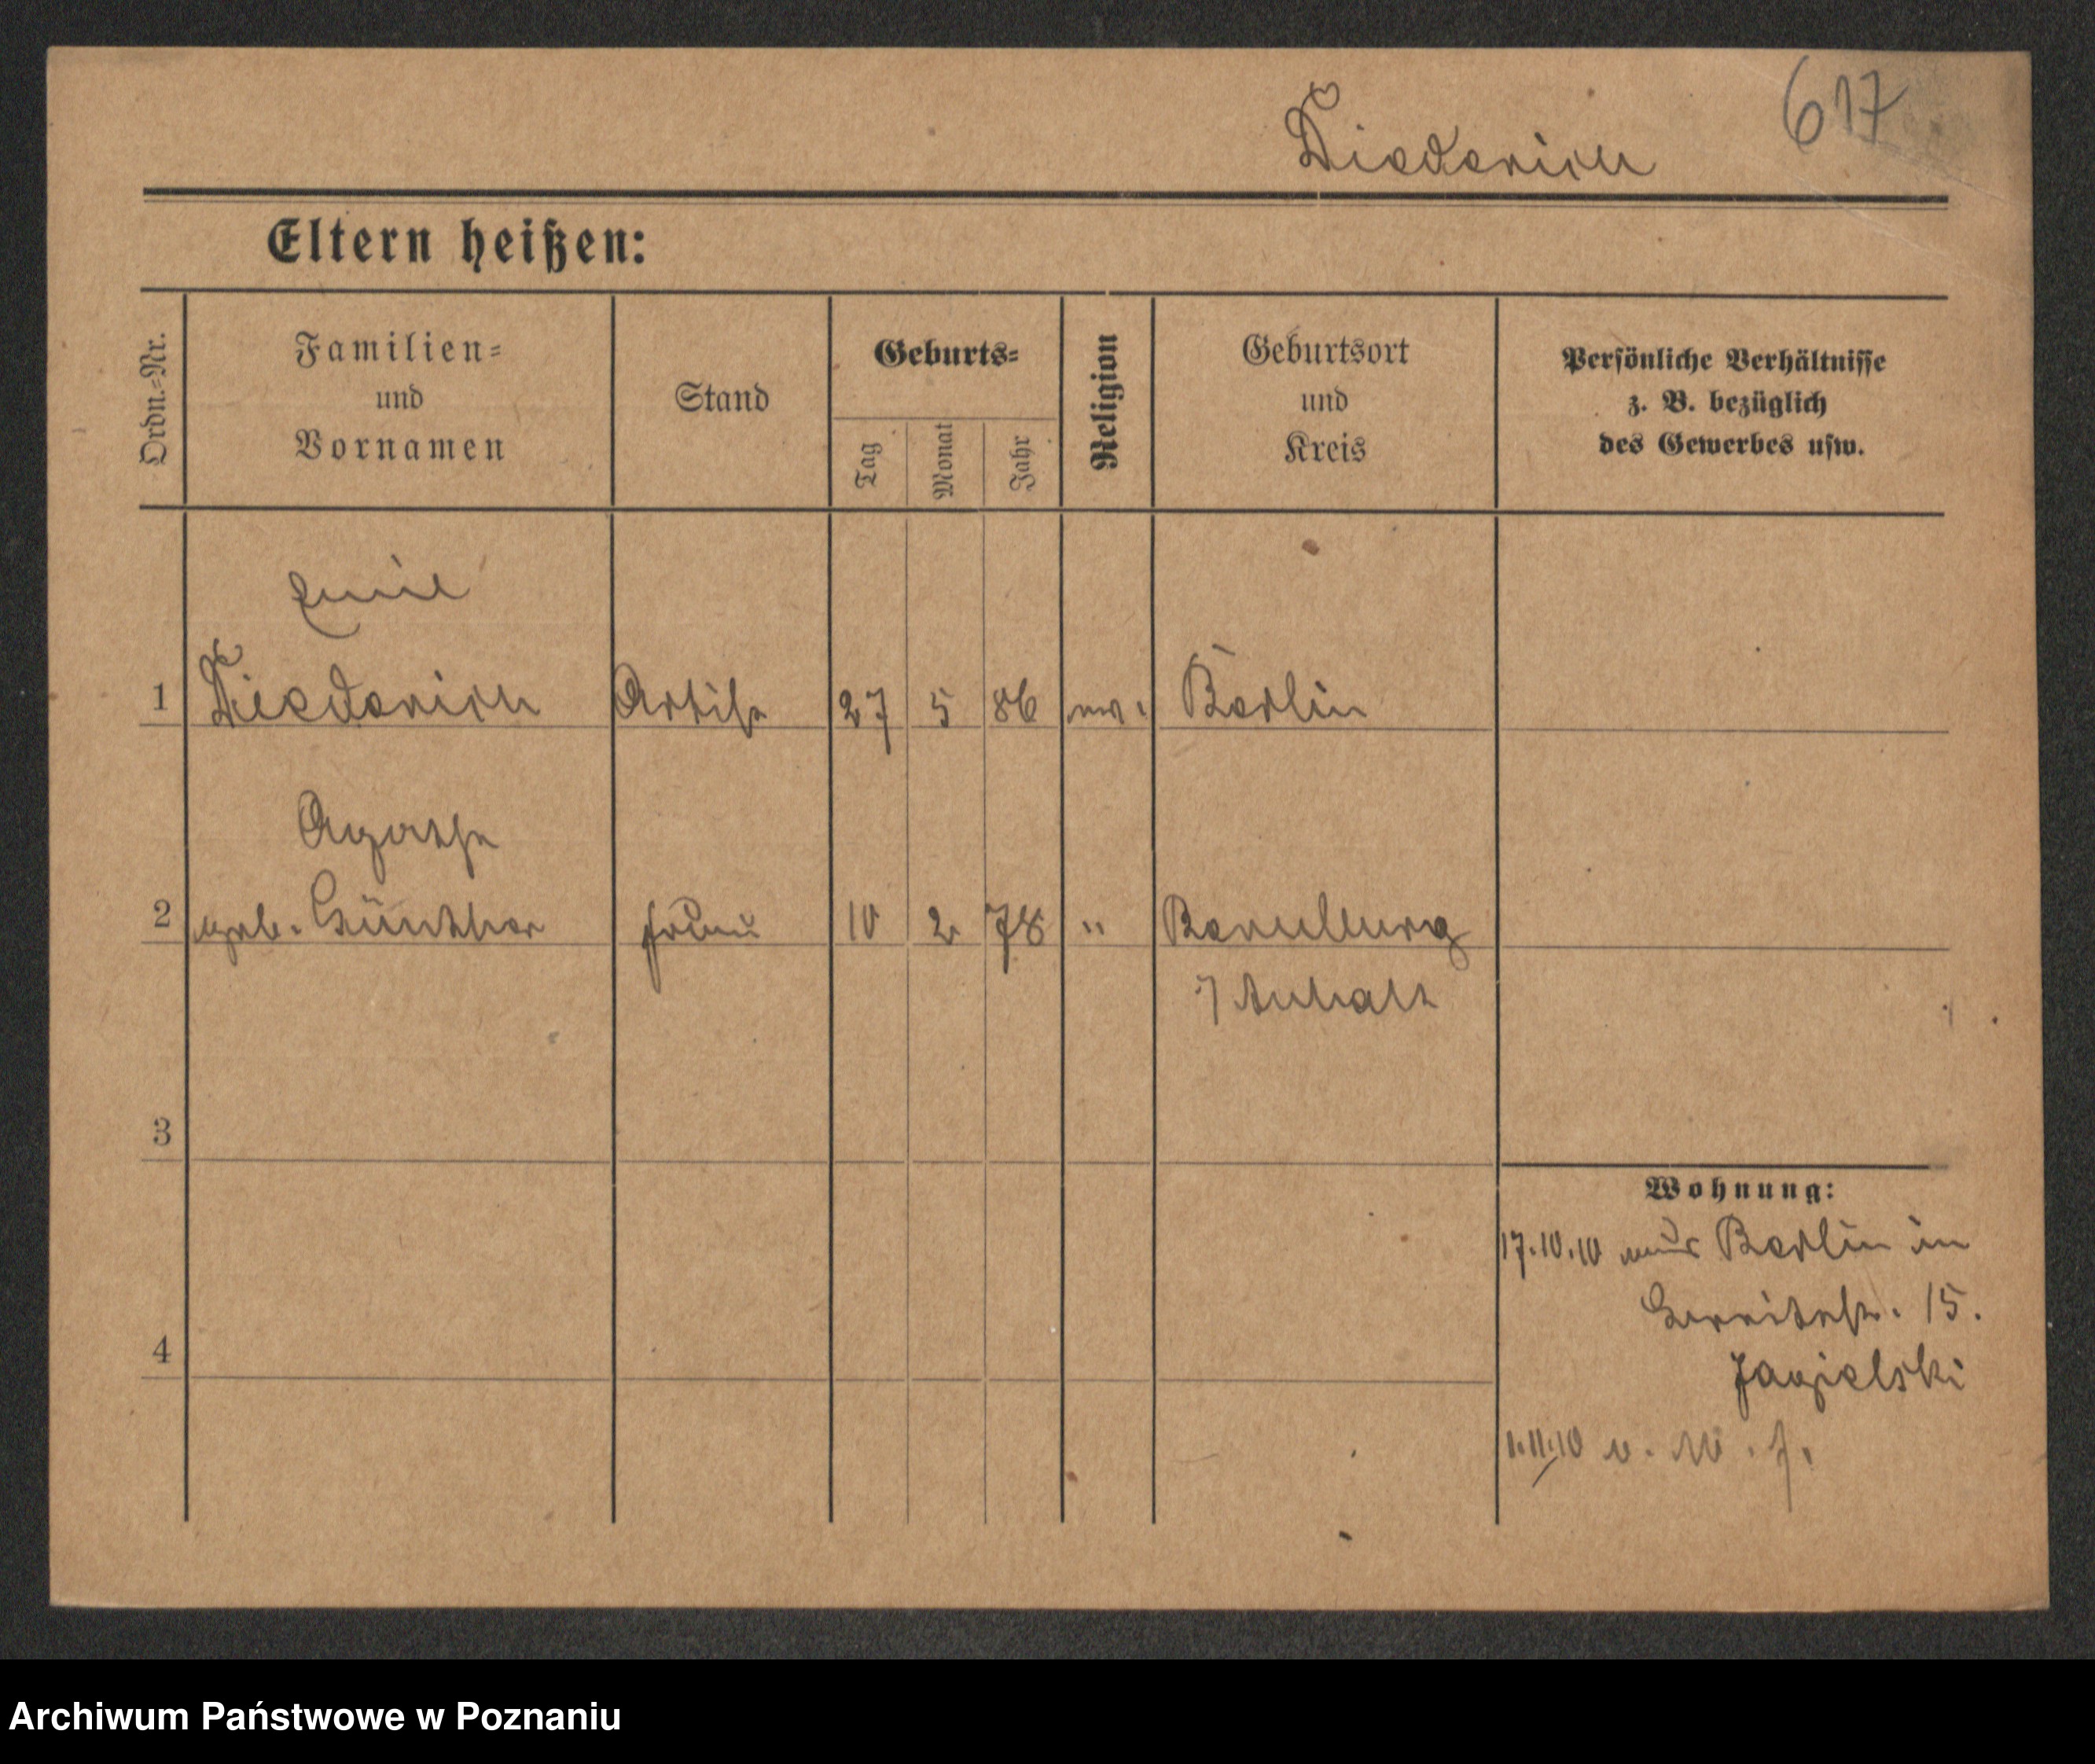 617
Diederich
Eltern heißen:
Ordn.-Nr.
Familien-
und
Vornamen
Stand
Geburts-
Tag
Monat
Jahr
Religion
Geburtsort
und
Kreis
Persönliche Verhältnisse
z. B. bezüglich
des Gewerbes usw.
Emil
1 Diederich Artist 27 5 86 ev. Berlin
Agathe
2 geb. Günther Frau 10 2 78 " Bernburg
Anhalt
3
Wohnung:
17.10.10 aus Berlin in
Breitestr. 15.
Jagielski
4
1.11.10